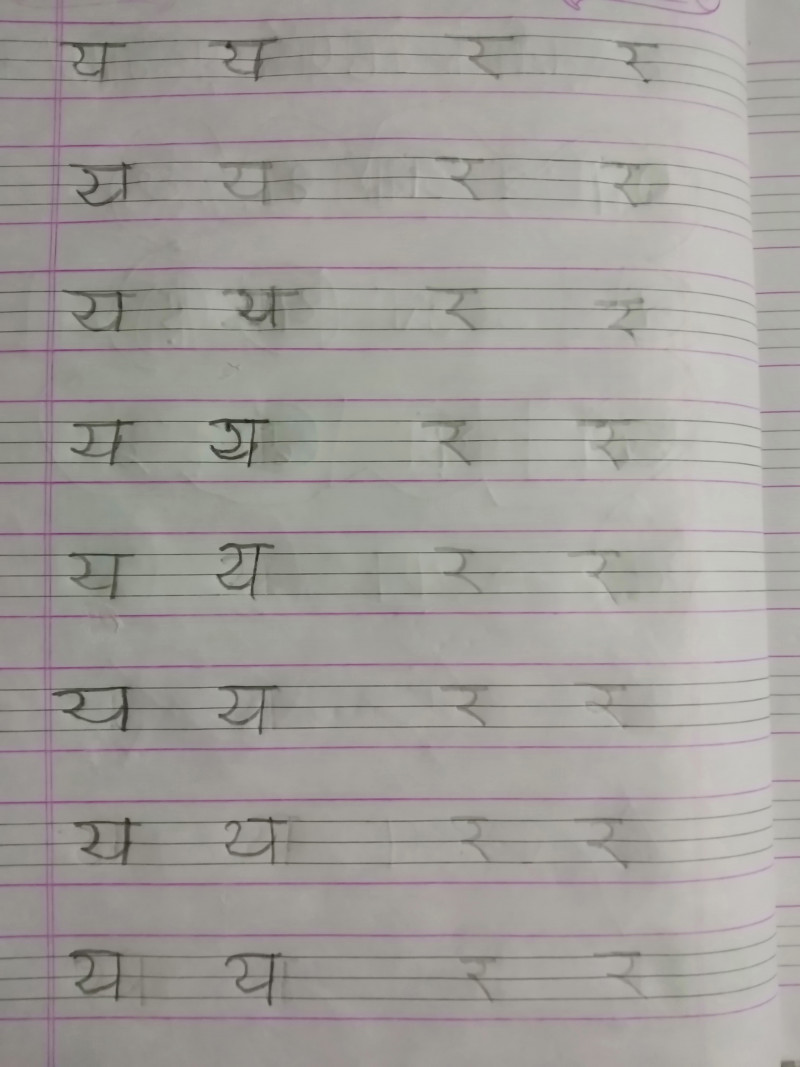 य य र र
य य र र
य य र र
य य र र
य य र र
य य र र
य य र र
य य र र